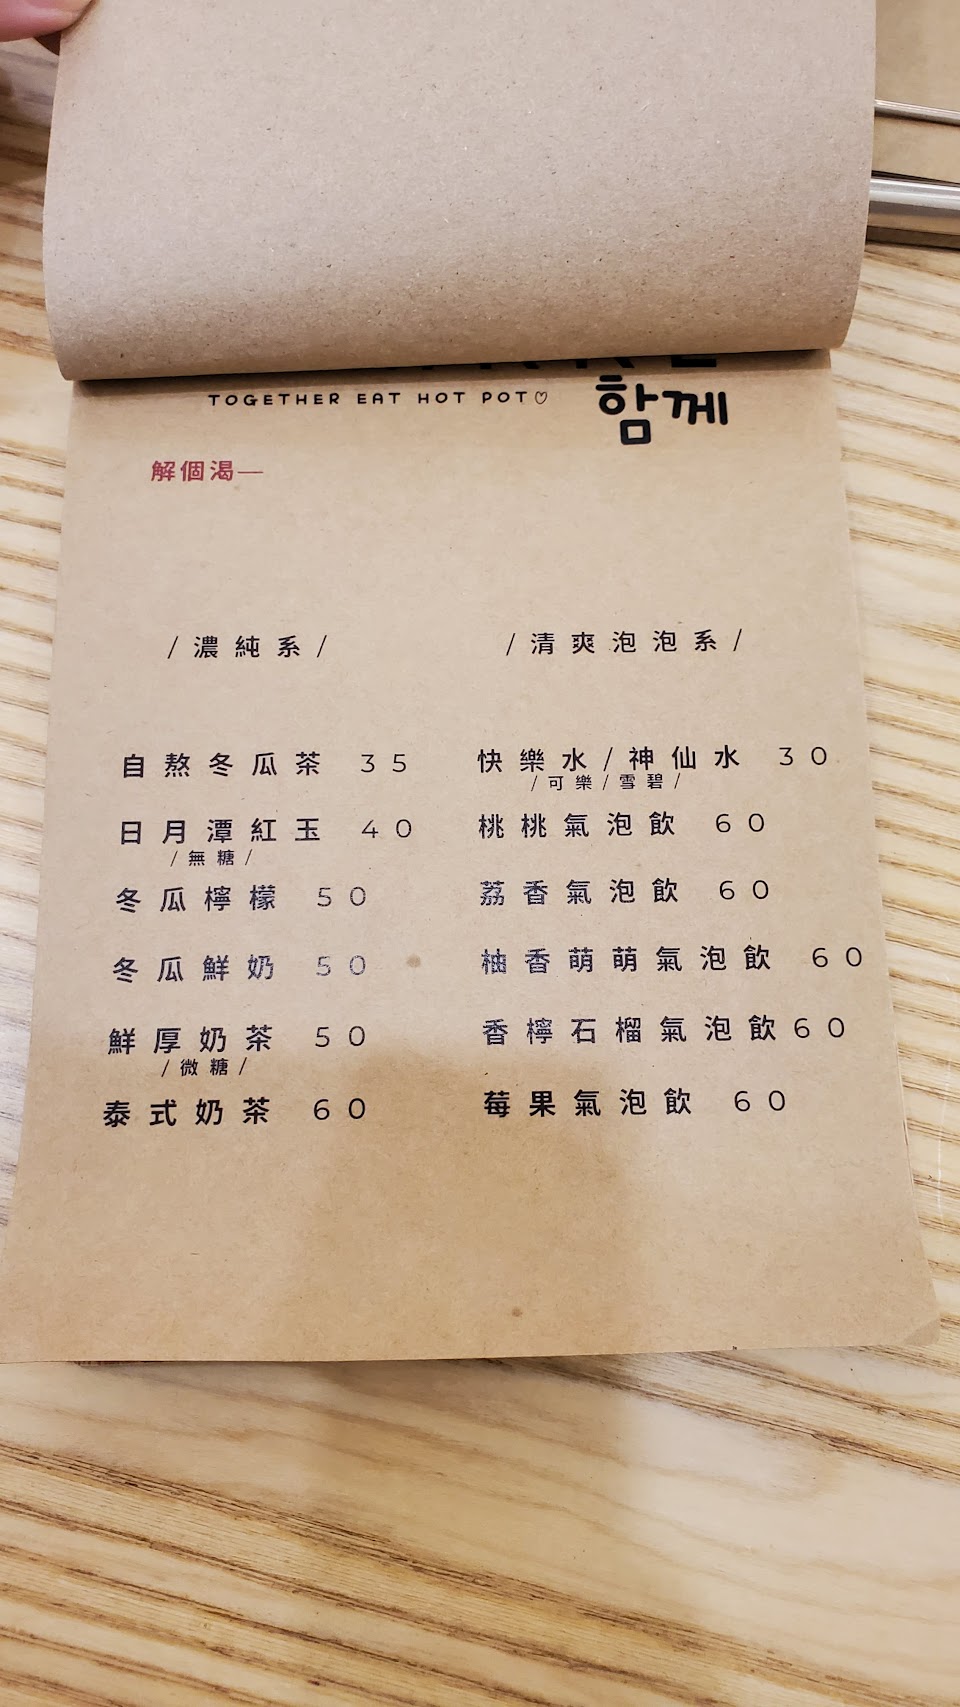 TOGETHER EAT HOT POT♡
함께
解個渴—
/濃純系/
自熬冬瓜茶 35
日月潭紅玉 40
/無糖/
冬瓜檸檬 50
冬瓜鮮奶 50
鮮厚奶茶 50
/微糖/
泰式奶茶 60
/清爽泡泡系/
快樂水/神仙水 30
/可樂/雪碧/
桃桃氣泡飲 60
荔香氣泡飲 60
柚香萌萌氣泡飲 60
香檸石榴氣泡飲 60
莓果氣泡飲 60